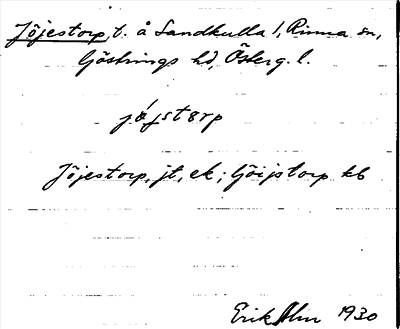 Jöjestorp, t. å Sandkulla l, Rinna sn,
Göstrings hd, Österg. l.
jǿjstɵrp
Jöjestorp, jt, ek; Göijstorp kb
Erik Alin 1930